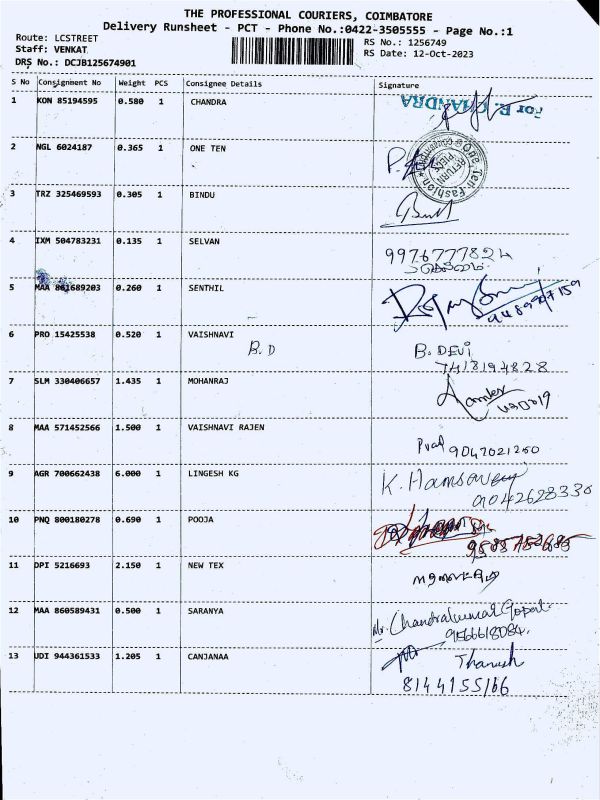 THE PROFESSIONAL COURIERS, COIMBATORE
Delivery Runsheet - PCT - Phone No.:0422-3505555 - Page No.:1
Route: LCSTREET
RS No.: 1256749
Staff: VENKAT
RS Date: 12-Oct-2023
DRS No.: DCJB125674901
S No Consignment No Weight PCS Consignee Details Signature
1 KON 85194595 0.580 1 CHANDRA For R. CHANDRA
2 NGL 6024187 0.365 1 ONE TEN One Ten Fashion
3 TRZ 325469593 0.305 1 BINDU
4 IXM 504783231 0.135 1 SELVAN 9976777824
5 MAA 861689203 0.260 1 SENTHIL
6 PRO 15425538 0.520 1 VAISHNAVI B. DEVi
B. D 7418194828
7 SLM 330406657 1.435 1 MOHANRAJ
8 MAA 571452566 1.500 1 VAISHNAVI RAJEN 9047021260
9 AGR 700662438 6.000 1 LINGESH KG K. Hamsaveni
9042628330
10 PNQ 800180278 0.690 1 POOJA
11 DPI 5216693 2.150 1 NEW TEX
12 MAA 860589431 0.500 1 SARANYA Mr. Chandrakumar Gopal
9566618084.
13 UDI 944361533 1.205 1 CANJANAA Thanush
8144155166